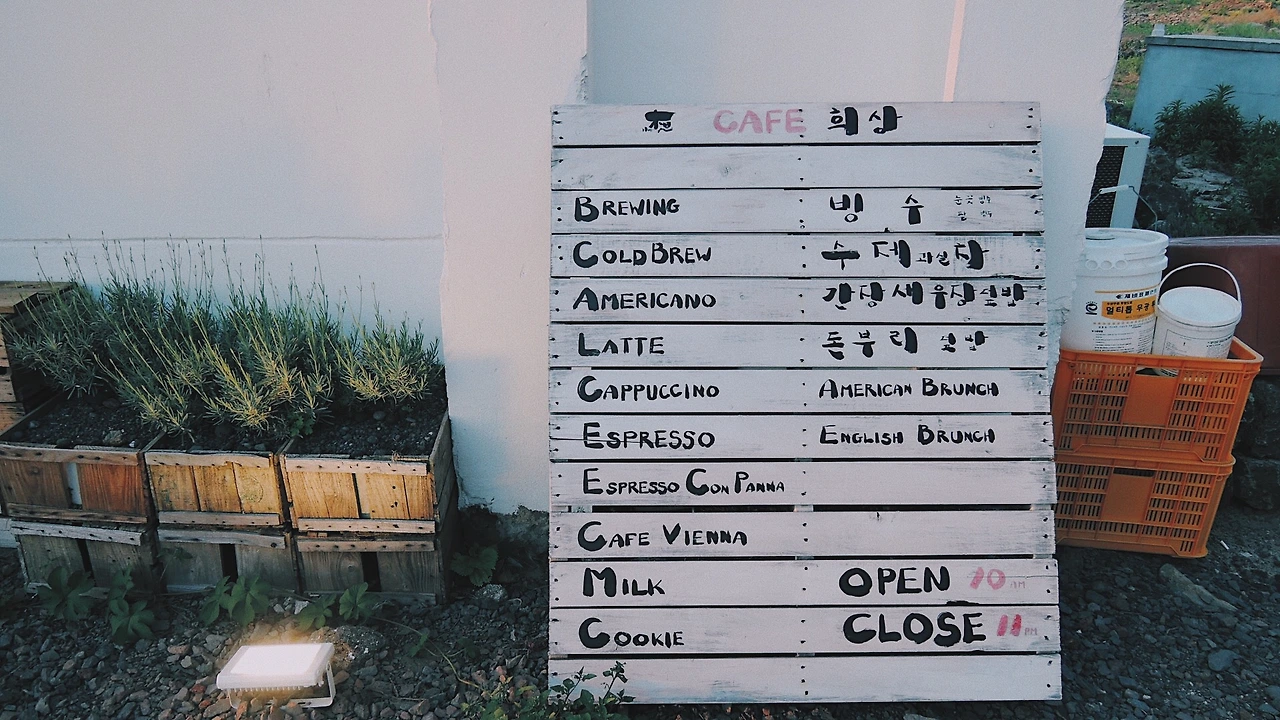 CAFE 희상
BREWING 빙수 눈꽃 빙수 팥 빙수
COLD BREW 수제 과실장
AMERICANO 간장새우장 쌀밥
LATTE 돈부리 쌀밥
CAPPUCCINO AMERICAN BRUNCH
ESPRESSO ENGLISH BRUNCH
ESPRESSO CON PANNA
CAFE VIENNA
MILK OPEN 10 AM
COOKIE CLOSE 11 PM